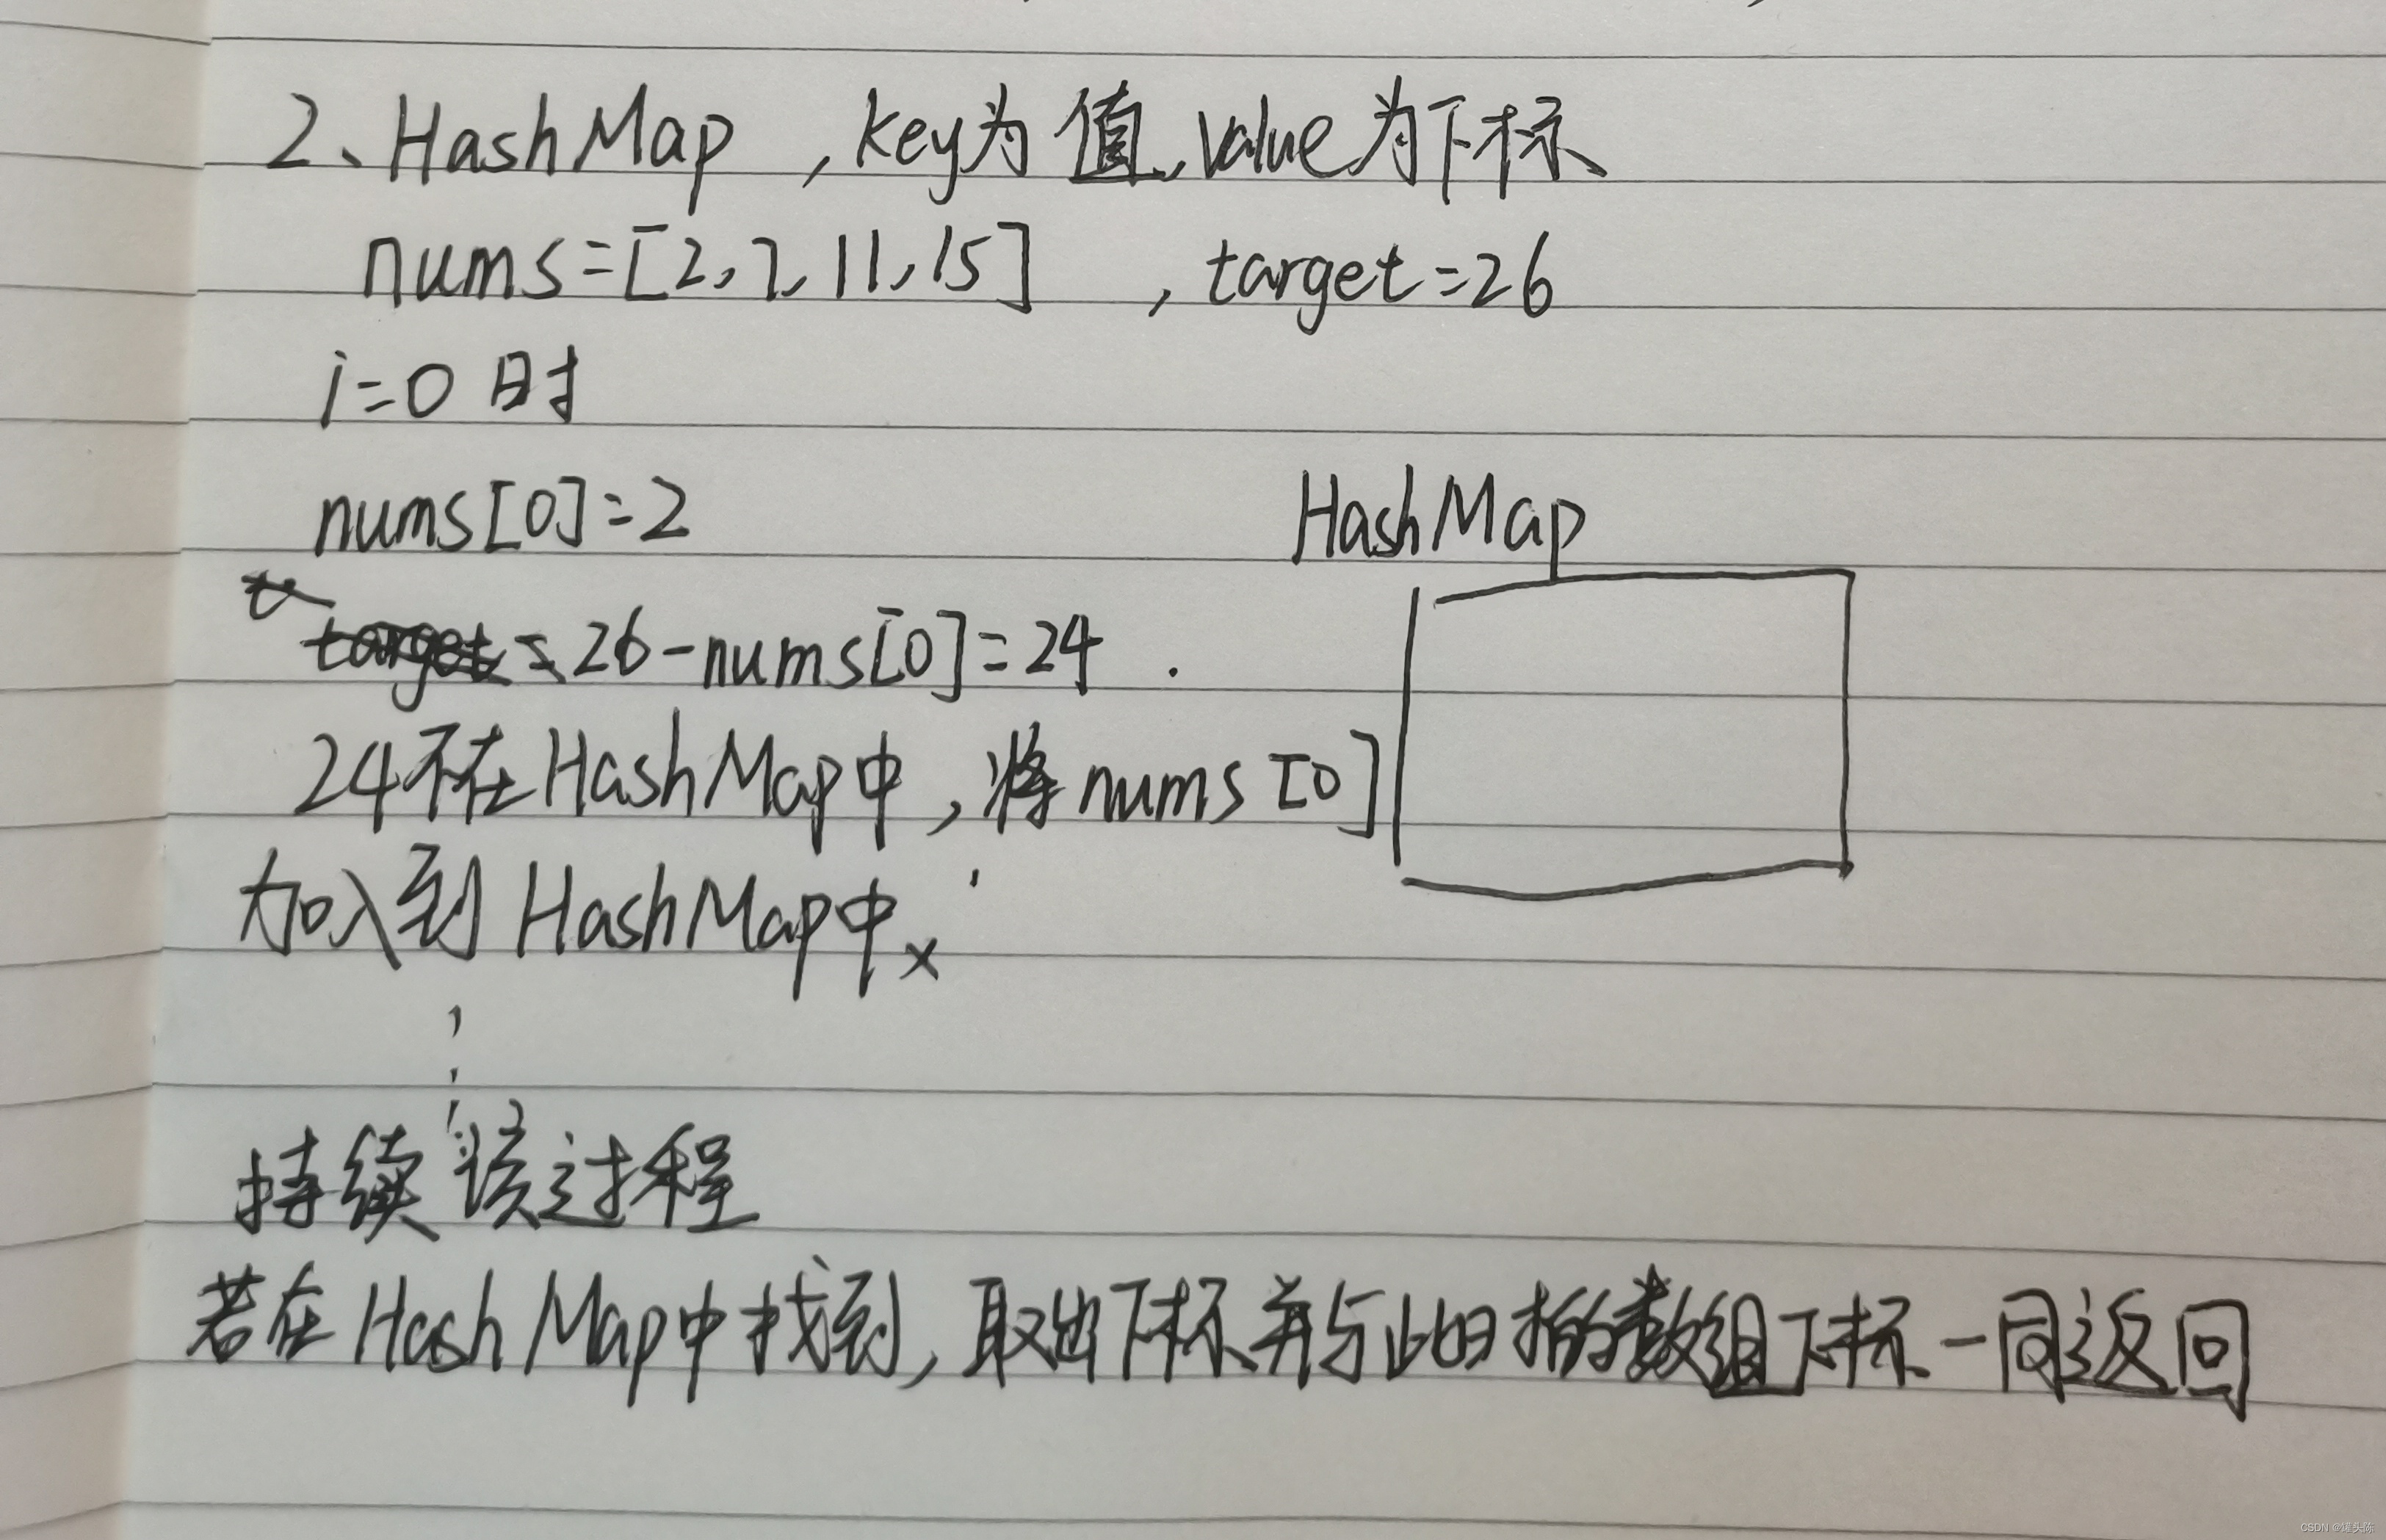 2、HashMap ,key为值,value为下标
nums=[2,7,11,15] ,target=26
i=0时
nums[0]=2
HashMap
target=26-nums[0]=24.
24不在HashMap中,将nums[0]
加入到HashMap中
持续该过程
若在HashMap中找到,取出下标并与此时的数组下标一同返回
CSDN @罐头陈